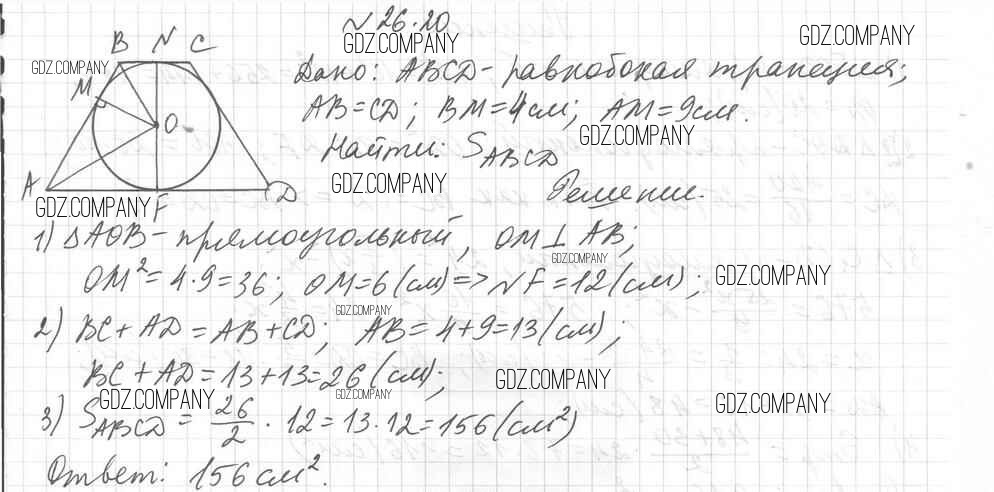 № 26.20
GDZ.COMPANY
GDZ.COMPANY
B N C
GDZ.COMPANY
Дано: ABCD - равнобокая трапеция;
M
AB = CD; BM = 4 см; AM = 9 см.
O
GDZ.COMPANY
Найти: S_ABCD
A D
GDZ.COMPANY
Решение.
GDZ.COMPANY F
1) ΔAOB - прямоугольный, OM ⊥ AB;
GDZ.COMPANY
OM² = 4·9 = 36; OM = 6 (см) => NF = 12 (см); GDZ.COMPANY
GDZ.COMPANY
2) BC + AD = AB + CD; AB = 4 + 9 = 13 (см);
BC + AD = 13 + 13 = 26 (см); GDZ.COMPANY
GDZ.COMPANY GDZ.COMPANY GDZ.COMPANY
3) S_ABCD = 26/2 · 12 = 13·12 = 156 (см²)
Ответ: 156 см².